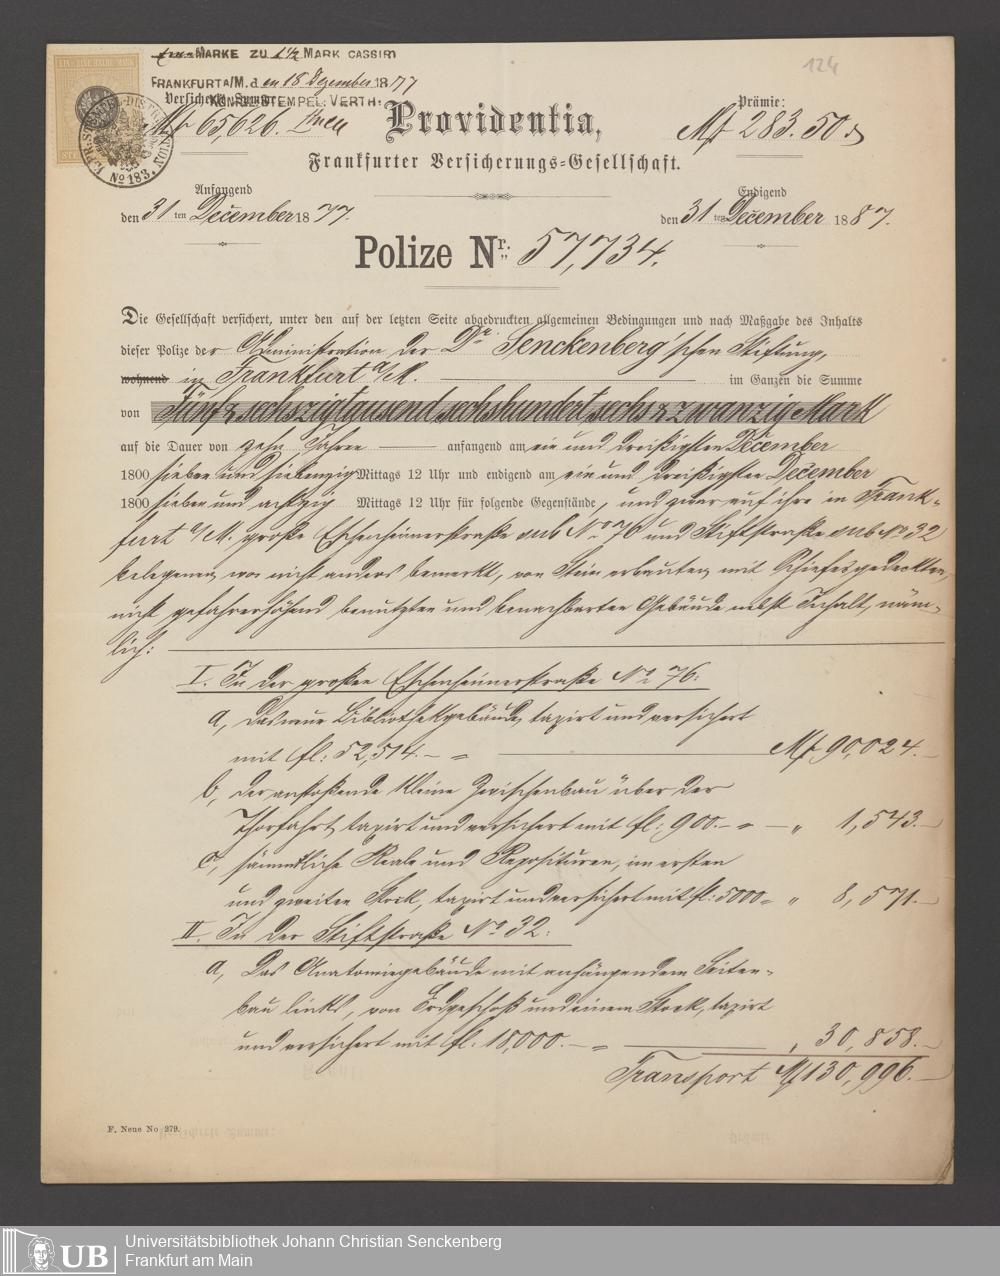 124
MARKE ZU 1 1/2 MARK CASSIRT
EIN UND EINE HALBE MARK
FRANKFURT A/M. d. en 18 Dezember 1877
KÖNIGL. STEMPEL: VERTH:
Versicherte Summe:
Mk 65,626.
Nº 183.
Providentia,
Prämie:
Mk 283.50
Frankfurter Versicherungs-Gesellschaft.
Anfangend
den 31ten December 1877.
Endigend
den 31ten December 1887.
Polize Nr. 57,734.
Die Gesellschaft versichert, unter den auf der letzten Seite abgedruckten allgemeinen Bedingungen und nach Maßgabe des Inhalts
dieser Polize der Administration der Dr. Senckenberg'schen Stiftung,
wohnend in Frankfurt a/M. im Ganzen die Summe
von Fünf & sechszigtausend sechshundert sechs & zwanzig Mark
auf die Dauer von zehn Jahren anfangend am ein und dreißigsten December
1800 sieben und siebenzig Mittags 12 Uhr und endigend am ein und dreißigsten December
1800 sieben und achtzig Mittags 12 Uhr für folgende Gegenstände, und zwar auf ihre in Frank-
furt a/M. große Eschenheimerstraße sub No 76 und Stiftstraße sub No 32
belegenen, wo nicht anders bemerkt, von Stein erbauten, mit Schiefer gedeckten,
nicht gefahrerhöhend benutzten und benachbarten Gebäude nebst Inhalt, näm-
lich:
I. In der großen Eschenheimerstraße No 76:
a, das neue Bibliothekgebäude, taxirt und versichert
mit fl: 52,514.- = Mk 90,024.-
b, der anstoßende kleine Zwischenbau über der
Thorfahrt, taxirt und versichert mit fl: 900.- = - " 1,543.-
c, sämmtliche Reale und Reposituren, im ersten
und zweiten Stock, taxirt und versichert mit fl: 5000 = " 8,571.-
II. In der Stiftstraße No 32:
a, Das Anatomiegebäude mit anhängendem Seiten-
bau links, von Erdgeschoß und einem Stock, taxirt
und versichert mit fl. 18,000.- = " 30,858.-
Transport Mk 130,996.-
F. Neue No 279.
UB
Universitätsbibliothek Johann Christian Senckenberg
Frankfurt am Main